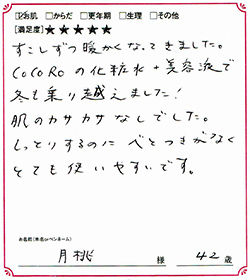 ☑お肌 □からだ □更年期 □生理 □その他
[満足度]★★★★★
すこしずつ暖かくなってきました。
CoCoRoの化粧水+美容液で
冬も乗り越えました!
肌のカサカサなしでした。
しっとりするのに べとつきがなく
とても使いやすいです。
お名前(本名orペンネーム)
月桃 様 42歳